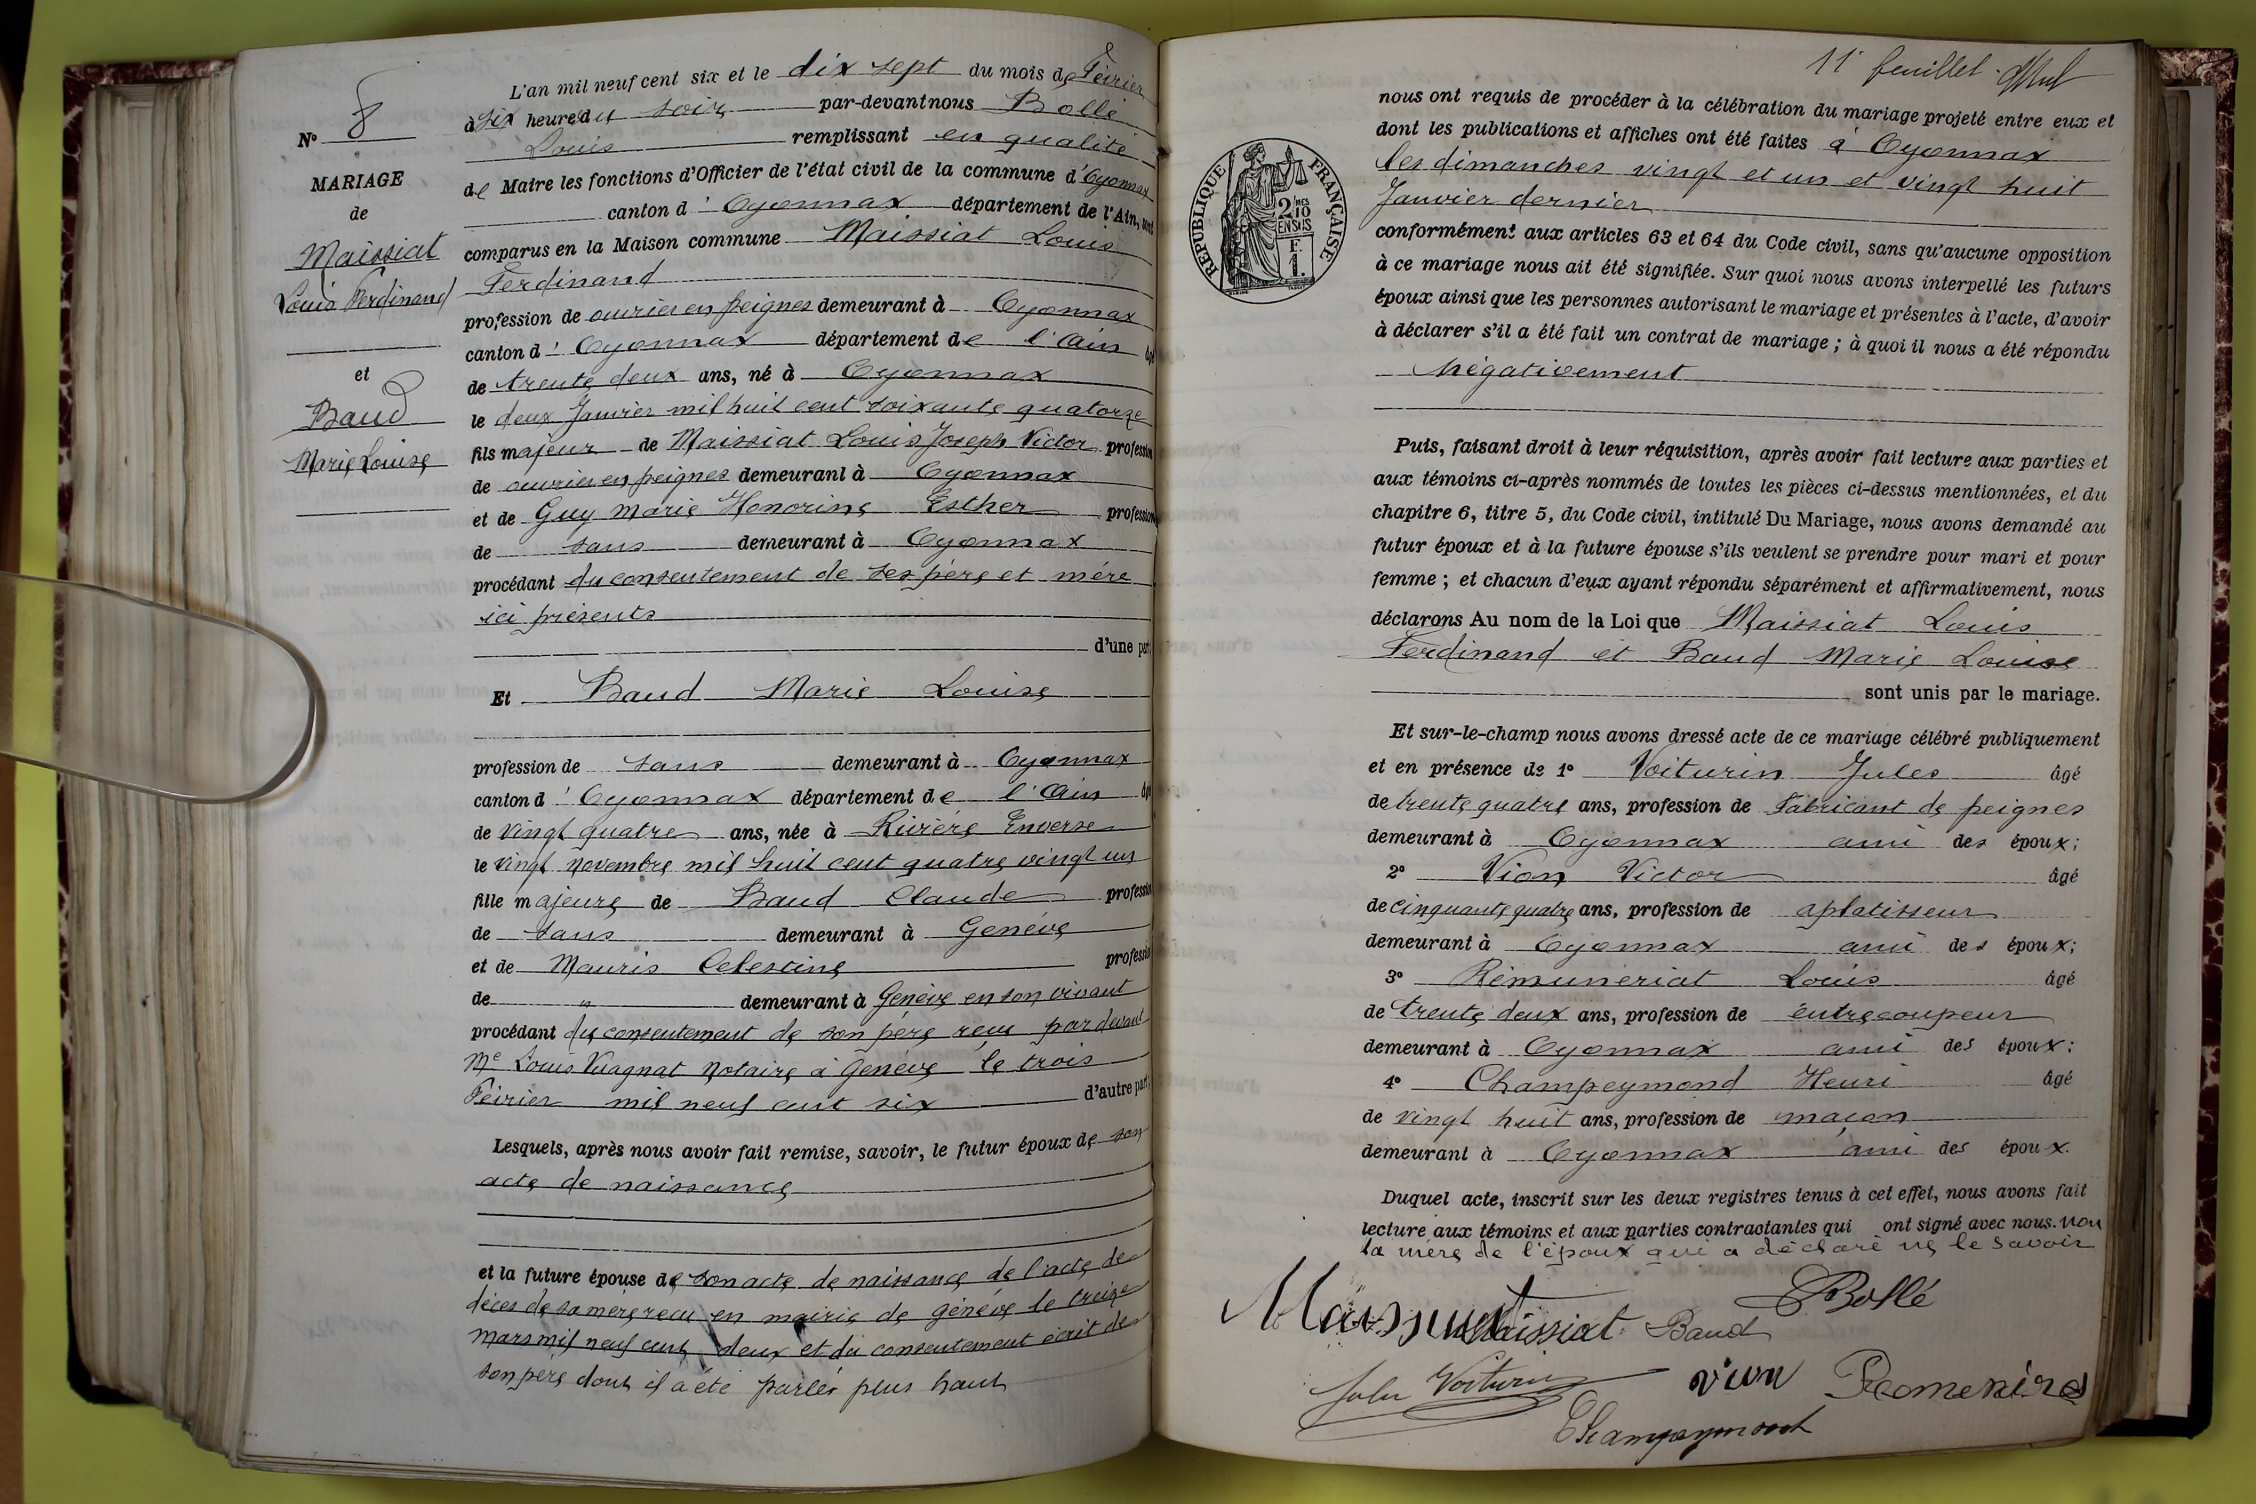 L'an mil neuf cent six et le dix sept du mois de Février
à six heures du soir par-devant nous Bollé
Louis remplissant en qualité
de Maire les fonctions d'Officier de l'état civil de la commune d'Oyonnax
canton d'Oyonnax département de l'Ain, sont
comparus en la Maison commune Maissiat Louis
Ferdinand
profession de ouvrier en peignes demeurant à Oyonnax
canton d'Oyonnax département de l'Ain âgé
de trente deux ans, né à Oyonnax
le deux Janvier mil huit cent soixante quatorze
fils majeur de Maissiat Louis Joseph Victor profession
de ouvrier en peignes demeurant à Oyonnax
et de Guy Marie Honorine Esther profession
de sans demeurant à Oyonnax
procédant du consentement de ses père et mère
ici présents
d'une part,
Et Baud Marie Louise
profession de sans demeurant à Oyonnax
canton d'Oyonnax département de l'Ain âgé
de vingt quatre ans, née à Rivière Enverse
le vingt novembre mil huit cent quatre vingt un
fille majeure de Baud Claude profession
de sans demeurant à Genève
et de Mauris Celestine profession
de " demeurant à Genève en son vivant
procédant du consentement de son père reçu par devant
Me Louis Vuagnat Notaire à Genève le trois
Février mil neuf cent six d'autre part;
Lesquels, après nous avoir fait remise, savoir, le futur époux de son
acte de naissance
et la future épouse de son acte de naissance de l'acte de
décès de sa mère reçu en mairie de genève le treize
mars mil neuf cent deux et du consentement écrit de
son père dont il a été parlé plus haut
No 8
MARIAGE
de
Maissiat
Louis Ferdinand
et
Baud
Marie Louise
11e feuillet
nous ont requis de procéder à la célébration du mariage projeté entre eux et
dont les publications et affiches ont été faites à Oyonnax
les dimanches vingt et un et vingt huit
Janvier dernier
conformément aux articles 63 et 64 du Code civil, sans qu'aucune opposition
à ce mariage nous ait été signifiée. Sur quoi nous avons interpellé les futurs
époux ainsi que les personnes autorisant le mariage et présentes à l'acte, d'avoir
à déclarer s'il a été fait un contrat de mariage ; à quoi il nous a été répondu
Négativement
Puis, faisant droit à leur réquisition, après avoir fait lecture aux parties et
aux témoins ci-après nommés de toutes les pièces ci-dessus mentionnées, et du
chapitre 6, titre 5, du Code civil, intitulé Du Mariage, nous avons demandé au
futur époux et à la future épouse s'ils veulent se prendre pour mari et pour
femme ; et chacun d'eux ayant répondu séparément et affirmativement, nous
déclarons Au nom de la Loi que Maissiat Louis
Ferdinand et Baud Marie Louise
sont unis par le mariage.
Et sur-le-champ nous avons dressé acte de ce mariage célébré publiquement
et en présence de 1º Voiturin Jules âgé
de trente quatre ans, profession de Fabricant de peignes
demeurant à Oyonnax ami des époux;
2º Vion Victor âgé
de cinquante quatre ans, profession de aplatisseur
demeurant à Oyonnax ami des époux;
3º Rémuneriat Louis âgé
de trente deux ans, profession de entrecoupeur
demeurant à Oyonnax ami des époux;
4º Champeymond Henri âgé
de vingt huit ans, profession de maçon
demeurant à Oyonnax ami des époux.
Duquel acte, inscrit sur les deux registres tenus à cet effet, nous avons fait
lecture aux témoins et aux parties contractantes qui ont signé avec nous. non
la mère de l'époux qui a déclaré ne le savoir
Bollé
Maissiat Maissiat Baud
Jules Voiturin vion
Champeymond
RÉPUBLIQUE FRANÇAISE
2/10
EN SUS
F.
1.